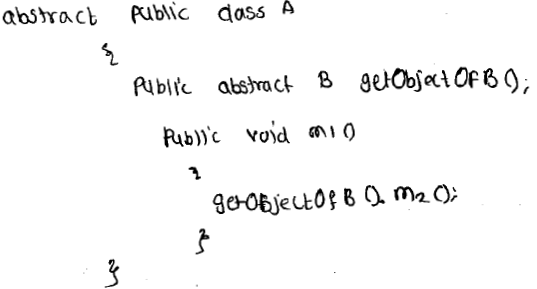 abstract Public class A
{
Public abstract B getObjectOfB();
Public void m1()
{
getObjectOfB().m2();
}
}